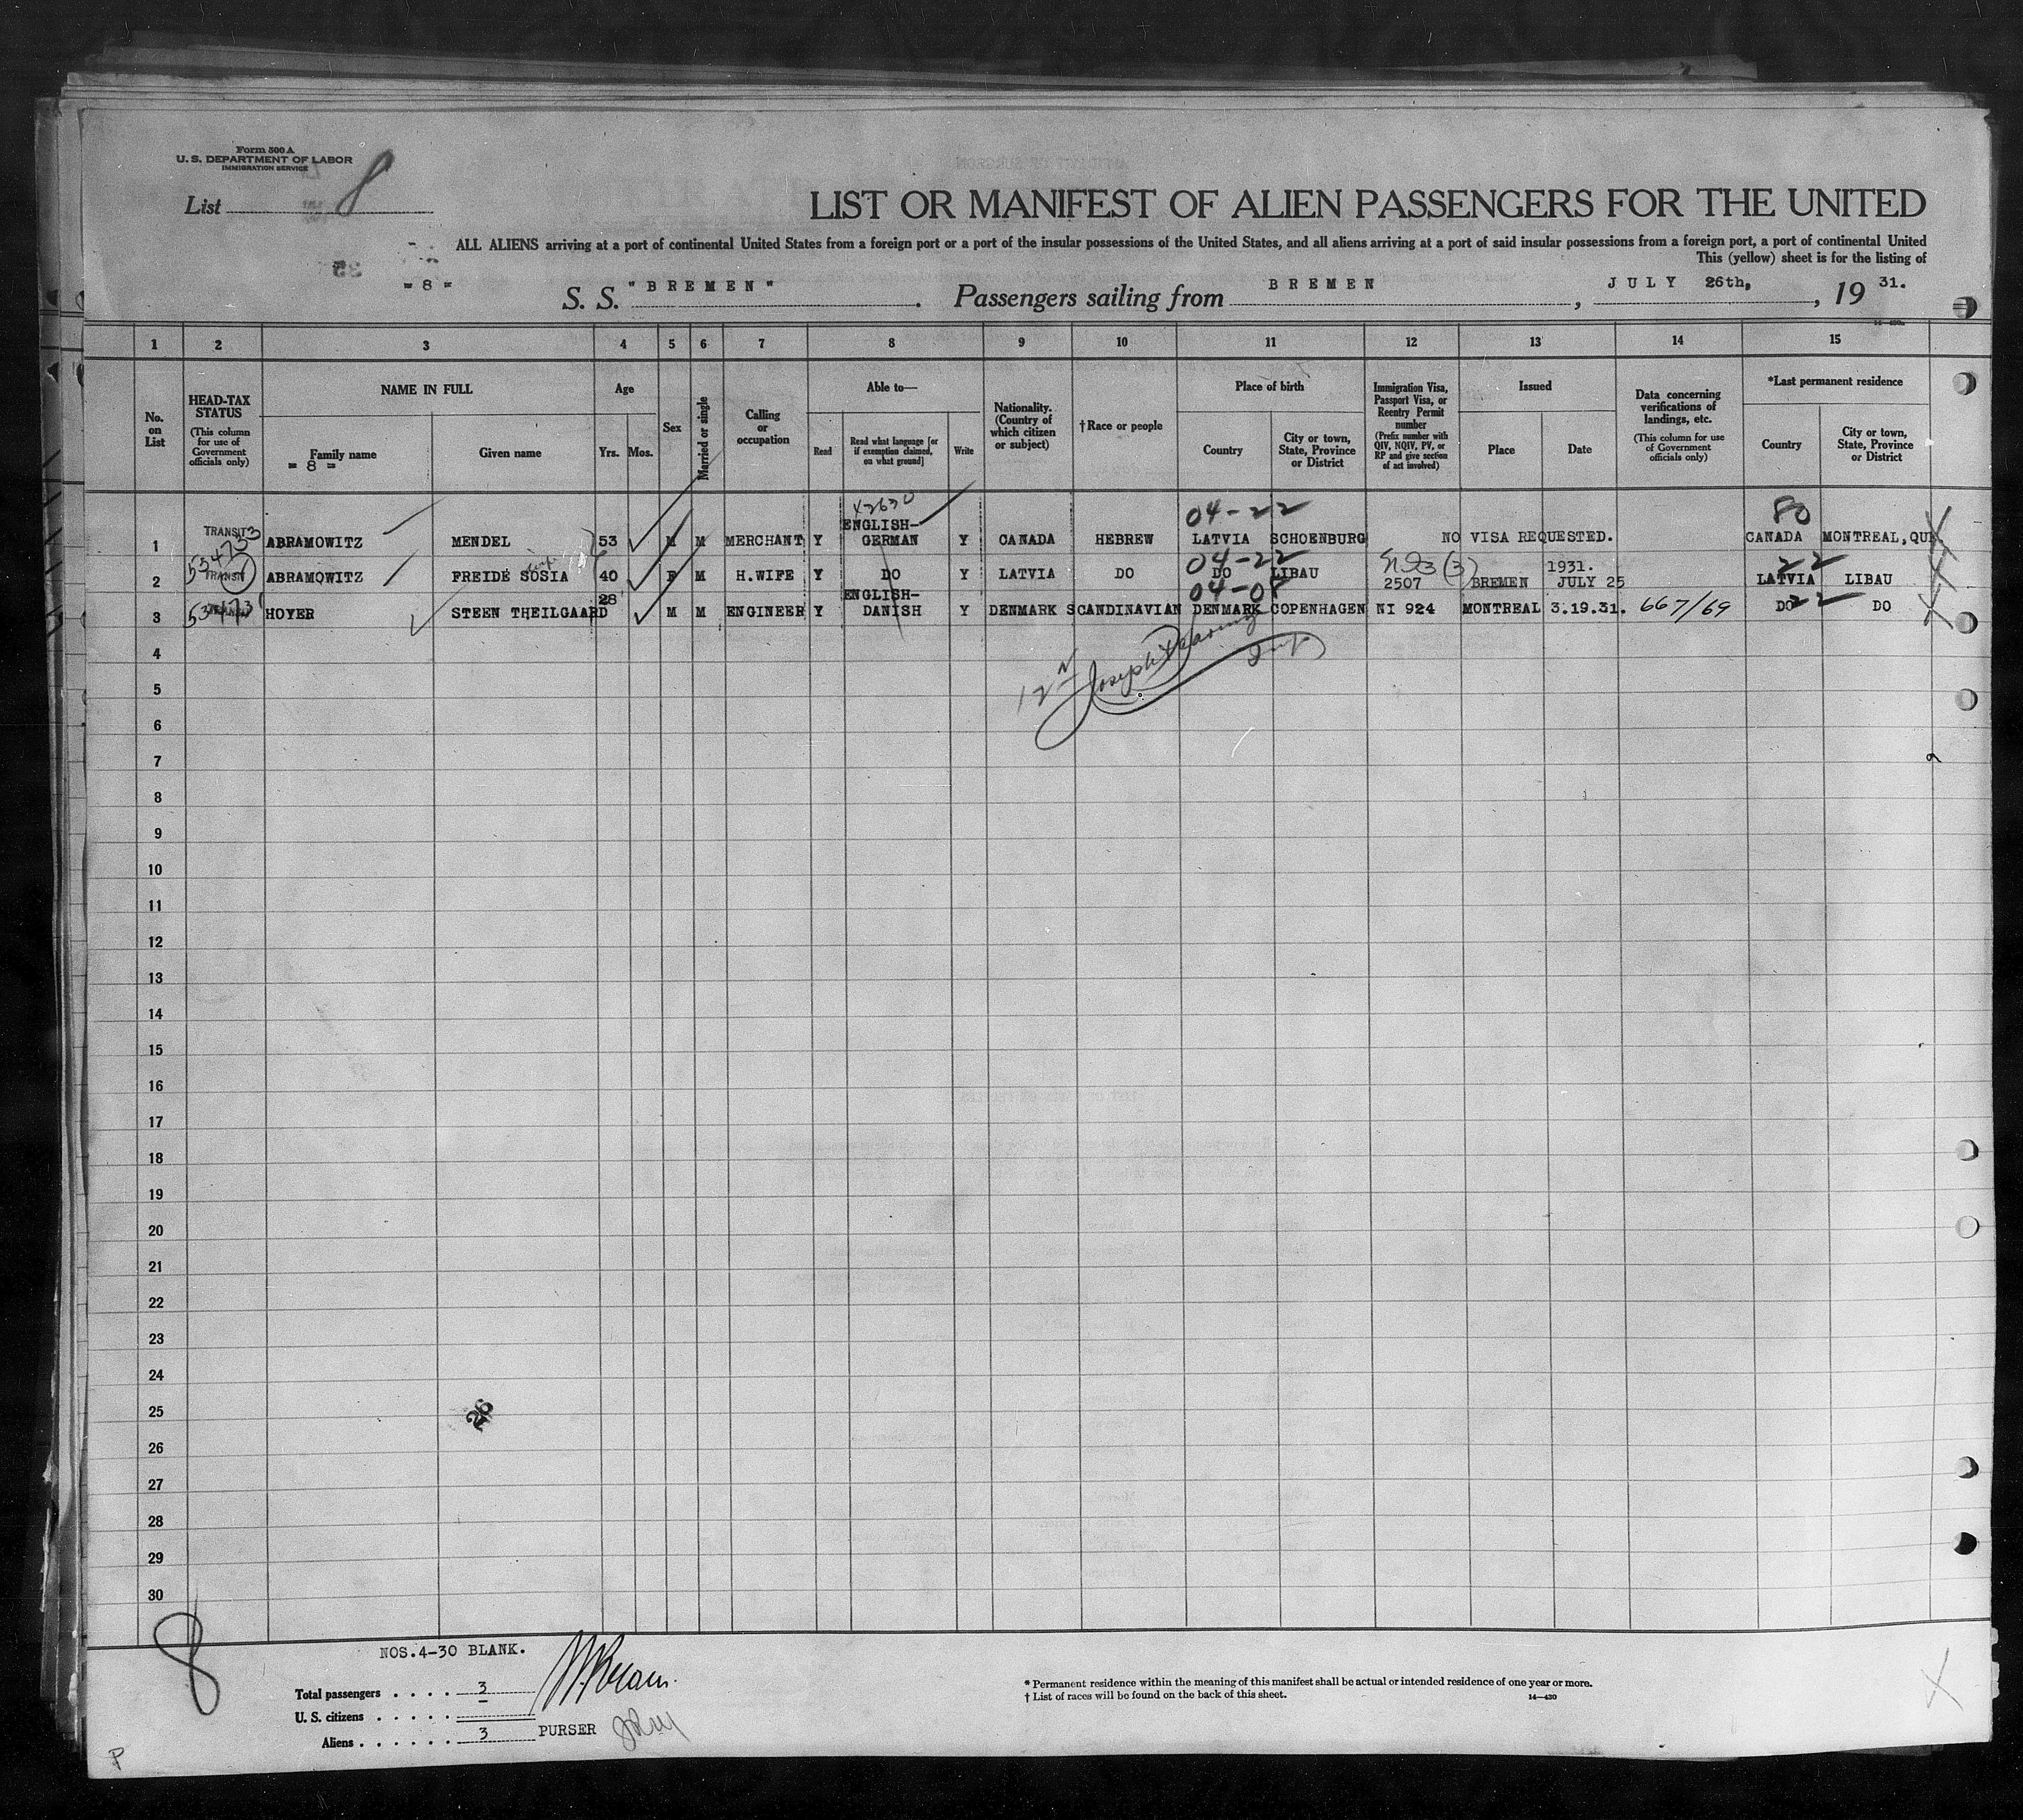 Form 500 A
U. S. DEPARTMENT OF LABOR
IMMIGRATION SERVICE
List 8
LIST OR MANIFEST OF ALIEN PASSENGERS FOR THE UNITED
ALL ALIENS arriving at a port of continental United States from a foreign port or a port of the insular possessions of the United States, and all aliens arriving at a port of said insular possessions from a foreign port, a port of continental United
This (yellow) sheet is for the listing of
= 8 =
S. S. "BREMEN". Passengers sailing from BREMEN, JULY 26th, 1931.
1 2 3 4 5 6 7 8 9 10 11 12 13 14 15
No. on List
HEAD-TAX STATUS (This column for use of Government officials only)
NAME IN FULL
Family name
= 8 =
Given name
Age
Yrs. Mos.
Sex
Married or single
Calling or occupation
Able to—
Read
Read what language [or if exemption claimed, on what ground]
Write
Nationality. (Country of which citizen or subject)
† Race or people
Place of birth
Country
City or town, State, Province or District
Immigration Visa, Passport Visa, or Reentry Permit number (Prefix number with QIV, NQIV, PV, or RP and give section of act involved)
Issued
Place
Date
Data concerning verifications of landings, etc. (This column for use of Government officials only)
*Last permanent residence
Country
City or town, State, Province or District
04-22 80
1 TRANSIT ABRAMOWITZ MENDEL 53 M M MERCHANT Y ENGLISH-GERMAN Y CANADA HEBREW LATVIA SCHOENBURG NO VISA REQUESTED. CANADA MONTREAL, QUE
04-22 22
2 TRANSIT ABRAMOWITZ FREIDE SOSIA 40 F M H.WIFE Y DO Y LATVIA DO DO LIBAU 2507 BREMEN 1931. JULY 25 LATVIA LIBAU
04-08 22
3 HOYER STEEN THEILGAARD 28 M M ENGINEER Y ENGLISH-DANISH Y DENMARK SCANDINAVIAN DENMARK COPENHAGEN NI 924 MONTREAL 3.19.31. 667/69 DO DO
4
5
6
7
8
9
10
11
12
13
14
15
16
17
18
19
20
21
22
23
24
25
26
26
27
28
29
30
8
NOS.4-30 BLANK.
Total passengers . . . . 3
U. S. citizens . . . . . –
Aliens . . . . . . 3
PURSER
* Permanent residence within the meaning of this manifest shall be actual or intended residence of one year or more.
† List of races will be found on the back of this sheet.
14—430
P